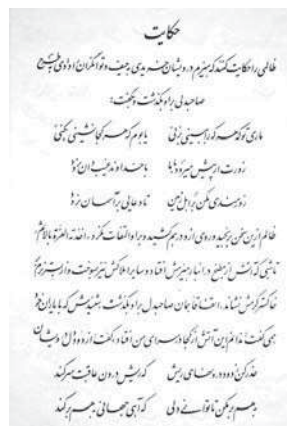 حکایت
ظالمی را حکایت کنند که هیزم درویشان خریدی بحیف و توانگران را دادی بطرح
صاحبدلی برو بگذشت و گفت:
ماری تو که هر که را ببینی بزنی یا بوم که هر کجا نشینی بکنی
زورت ار پیش میرود با ما با خداوند غیب دان نرود
زورمندی مکن بر اهل زمین تا دعایی بر آسمان نرود
ظالم ازین سخن برنجید و روی ازو درهم کشید و برو التفات نکرد، اخذته العزة بالاثم
تا شبی که آتش از مطبخ در انبار هیزمش افتاد و سایر املاکش بسوخت و از بستر نرمش
بخاکستر گرم نشاند، اتفاقا همان صاحبدل برو بگذشت شنیدش که با یاران خود
همی گفت ندانم این آتش از کجا در سرای من افتاد، گفت از دود دل درویشان
حذر کن ز دود درونهای ریش که ریش درون عاقبت سر کند
بهم بر مکن تا توانی دلی که آهی جهانی بهم بر کند